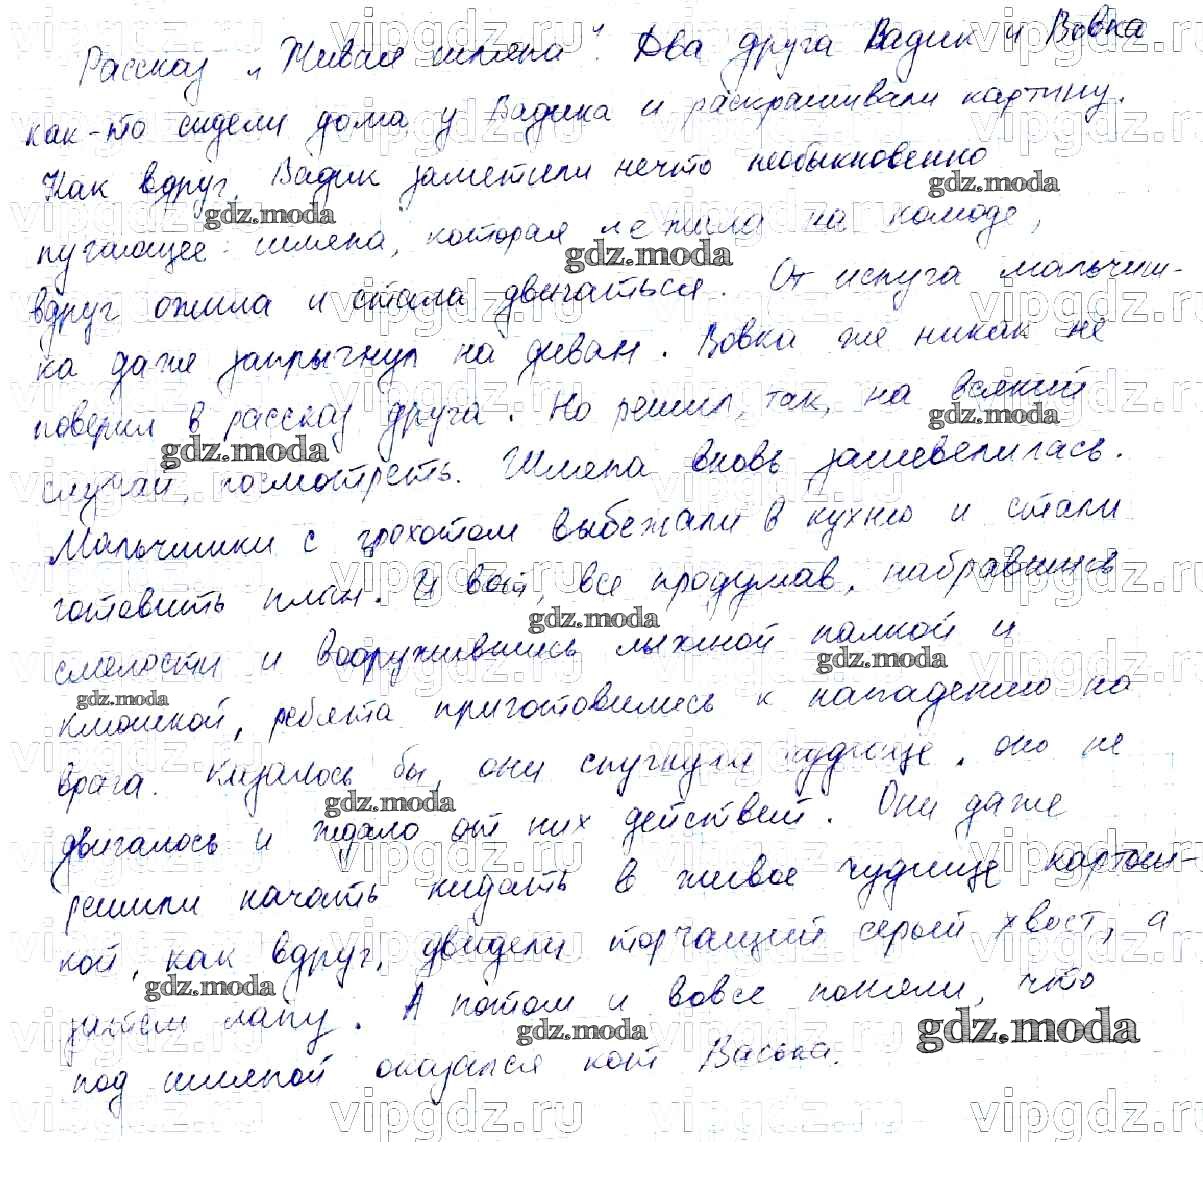 Рассказ „Живая шляпа". Два друга Вадик и Вовка
как-то сидели дома у Вадика и раскрашивали картину.
Как вдруг, Вадик заметили нечто необыкновенно
пугающее: шляпа, которая лежала на комоде,
вдруг ожила и стала двигаться. От испуга мальчиш-
ка даже запрыгнул на диван. Вовка же никак не
поверил в рассказ друга. Но решил, так, на всякий
случай, посмотреть. Шляпа вновь зашевелилась.
Мальчишки с грохотом выбежали в кухню и стали
готовить план. И вот, все продумав, набравшись
смелости и вооружившись лыжной палкой и
клюшкой, ребята приготовились к нападению на
врага. Казалось бы, они спугнули чудище, оно не
двигалось и ждало от них действий. Они даже
решили начать кидать в живое чудище картош-
кой, как вдруг, увидели торчащий серый хвост, а
затем лапу. А потом и вовсе поняли, что
под шляпой оказался кот Васька.
vipgdz.ru
gdz.moda